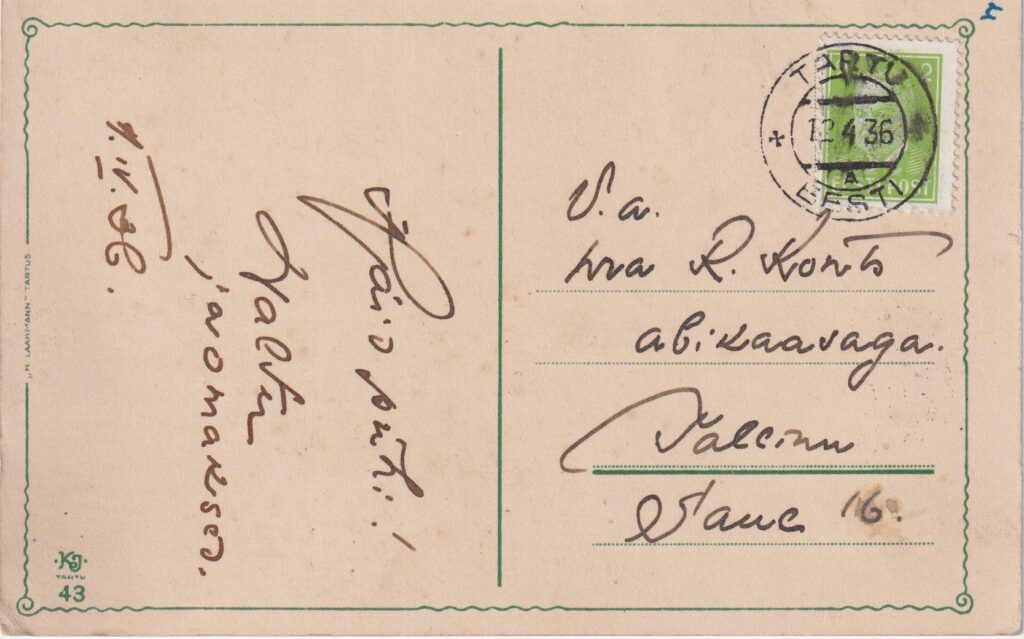 TARTU
12 4 36
A
EESTI
2
EESTI POST
V. a.
hra R. Konts
abikaasaga.
Tallinn
16.
Häid pühi!
ja omaksed.
IV. 36.
„H. LAAKMANN" TARTUS
KJ
TARTU
43